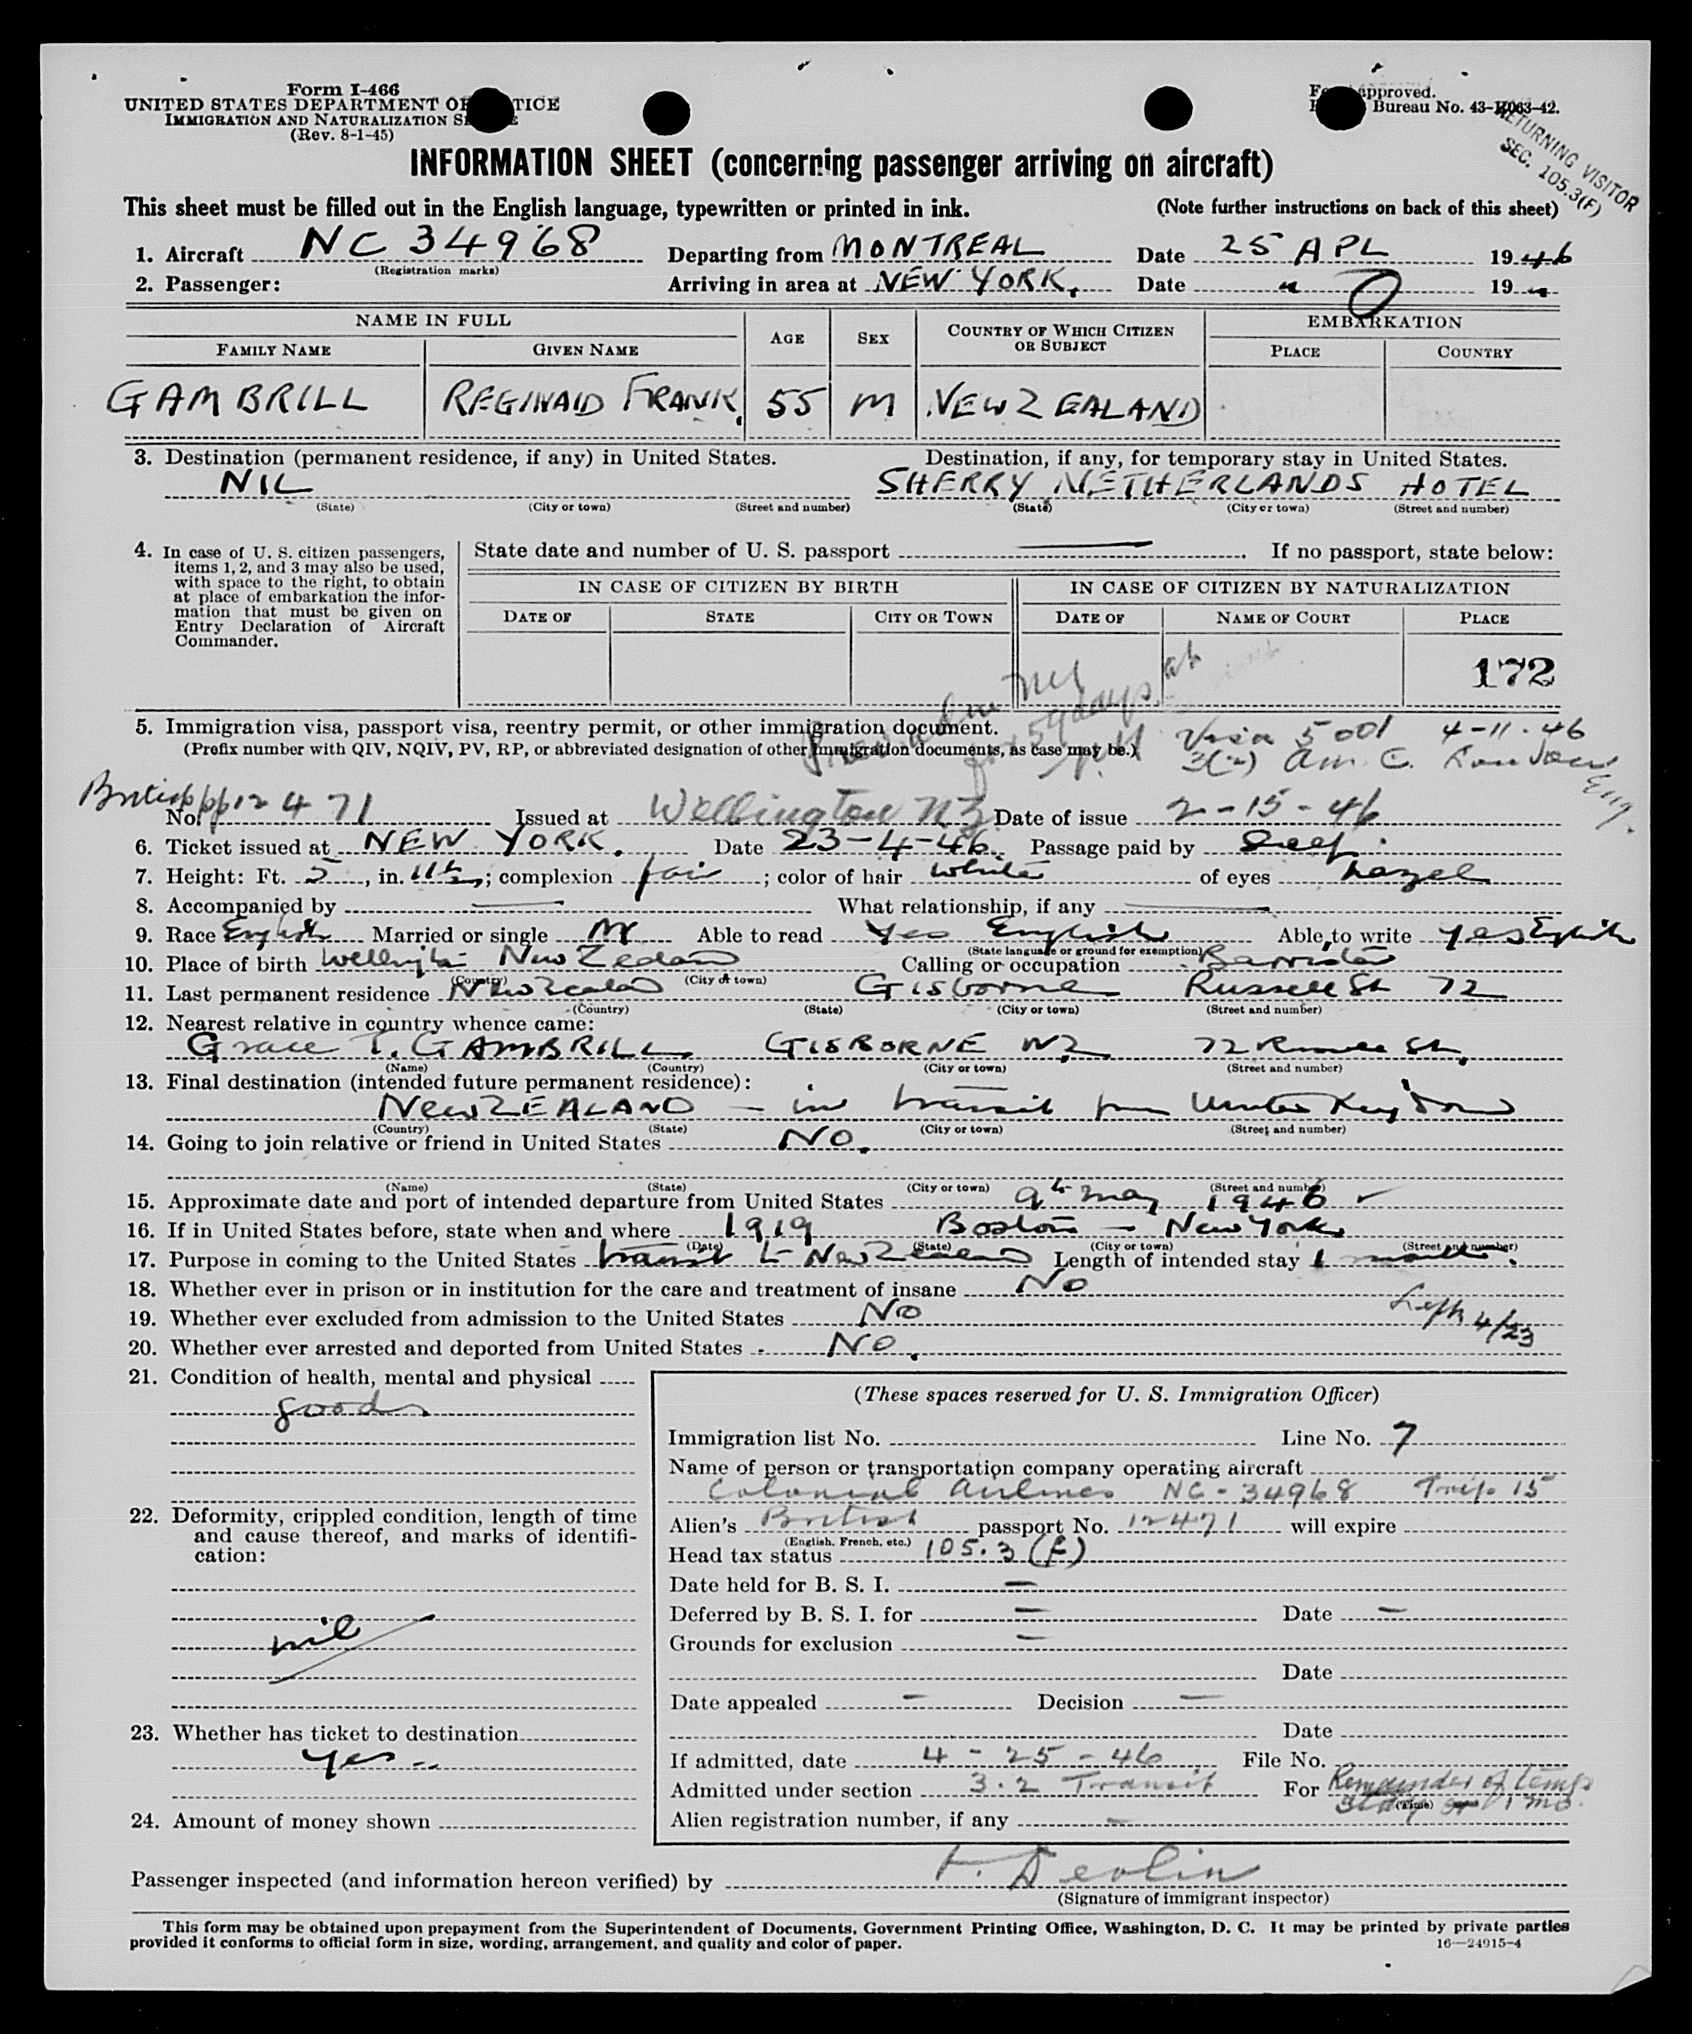 Form I-466
UNITED STATES DEPARTMENT OF JUSTICE
IMMIGRATION AND NATURALIZATION SERVICE
(Rev. 8-1-45)
Form approved.
Bureau No. 43-R063-42.
RETURNING VISITOR
SEC. 105.3(F)
INFORMATION SHEET (concerning passenger arriving on aircraft)
This sheet must be filled out in the English language, typewritten or printed in ink. (Note further instructions on back of this sheet)
1. Aircraft NC 34968 Departing from MONTREAL Date 25 APL 1946
(Registration marks)
2. Passenger: Arriving in area at NEW YORK. Date " 19 "
NAME IN FULL AGE SEX COUNTRY OF WHICH CITIZEN OR SUBJECT EMBARKATION
FAMILY NAME GIVEN NAME PLACE COUNTRY
GAMBRILL REGINALD FRANK 55 M NEW ZEALAND
3. Destination (permanent residence, if any) in United States. Destination, if any, for temporary stay in United States.
NIL SHERRY NETHERLANDS HOTEL
(State) (City or town) (Street and number) (State) (City or town) (Street and number)
4. In case of U. S. citizen passengers, items 1, 2, and 3 may also be used, with space to the right, to obtain at place of embarkation the information that must be given on Entry Declaration of Aircraft Commander.
State date and number of U. S. passport If no passport, state below:
IN CASE OF CITIZEN BY BIRTH IN CASE OF CITIZEN BY NATURALIZATION
DATE OF STATE CITY OR TOWN DATE OF NAME OF COURT PLACE
172
5. Immigration visa, passport visa, reentry permit, or other immigration document.
(Prefix number with QIV, NQIV, PV, RP, or abbreviated designation of other immigration documents, as case may be.)
59 days at
Visa 5001 4-11-46
3(2) Am. C. London Eng.
British pp 12471
No. Issued at Wellington NZ Date of issue 2-15-46
6. Ticket issued at NEW YORK. Date 23-4-46 Passage paid by Self
7. Height: Ft. 5, in. 11½; complexion fair; color of hair white of eyes hazel
8. Accompanied by What relationship, if any
9. Race English Married or single M Able to read Yes English Able to write Yes English
(State language or ground for exemption)
10. Place of birth Wellington New Zealand Calling or occupation Barrister
(Country) (City or town)
11. Last permanent residence New Zealand Gisborne Russell St 72
(Country) (State) (City or town) (Street and number)
12. Nearest relative in country whence came:
Grace T. GAMBRILL GISBORNE NZ 72 Russell St.
(Name) (Country) (City or town) (Street and number)
13. Final destination (intended future permanent residence):
NEW ZEALAND - in transit from United Kingdom
(Country) (State) (City or town) (Street and number)
14. Going to join relative or friend in United States NO.
(Name) (State) (City or town) (Street and number)
15. Approximate date and port of intended departure from United States 9th May 1946
16. If in United States before, state when and where 1919 Boston - New York
(Date) (State) (City or town) (Street and number)
17. Purpose in coming to the United States transit to New Zealand Length of intended stay 1 month.
18. Whether ever in prison or in institution for the care and treatment of insane NO
19. Whether ever excluded from admission to the United States NO
Left 4/23
20. Whether ever arrested and deported from United States NO.
21. Condition of health, mental and physical
good
22. Deformity, crippled condition, length of time and cause thereof, and marks of identification:
nil
23. Whether has ticket to destination
yes
24. Amount of money shown
(These spaces reserved for U. S. Immigration Officer)
Immigration list No. Line No. 7
Name of person or transportation company operating aircraft
Colonial Airlines NC-34968 Trip 15
Alien's British passport No. 12471 will expire
(English, French, etc.)
Head tax status 105.3(f)
Date held for B. S. I. -
Deferred by B. S. I. for - Date -
Grounds for exclusion -
Date
Date appealed - Decision -
Date
If admitted, date 4-25-46 File No.
Admitted under section 3.2 Transit For Remainder of temp.
stay 1 mo.
(Time)
Alien registration number, if any -
Passenger inspected (and information hereon verified) by Devlin
(Signature of immigrant inspector)
This form may be obtained upon prepayment from the Superintendent of Documents, Government Printing Office, Washington, D. C. It may be printed by private parties
provided it conforms to official form in size, wording, arrangement, and quality and color of paper.
16—24915-4